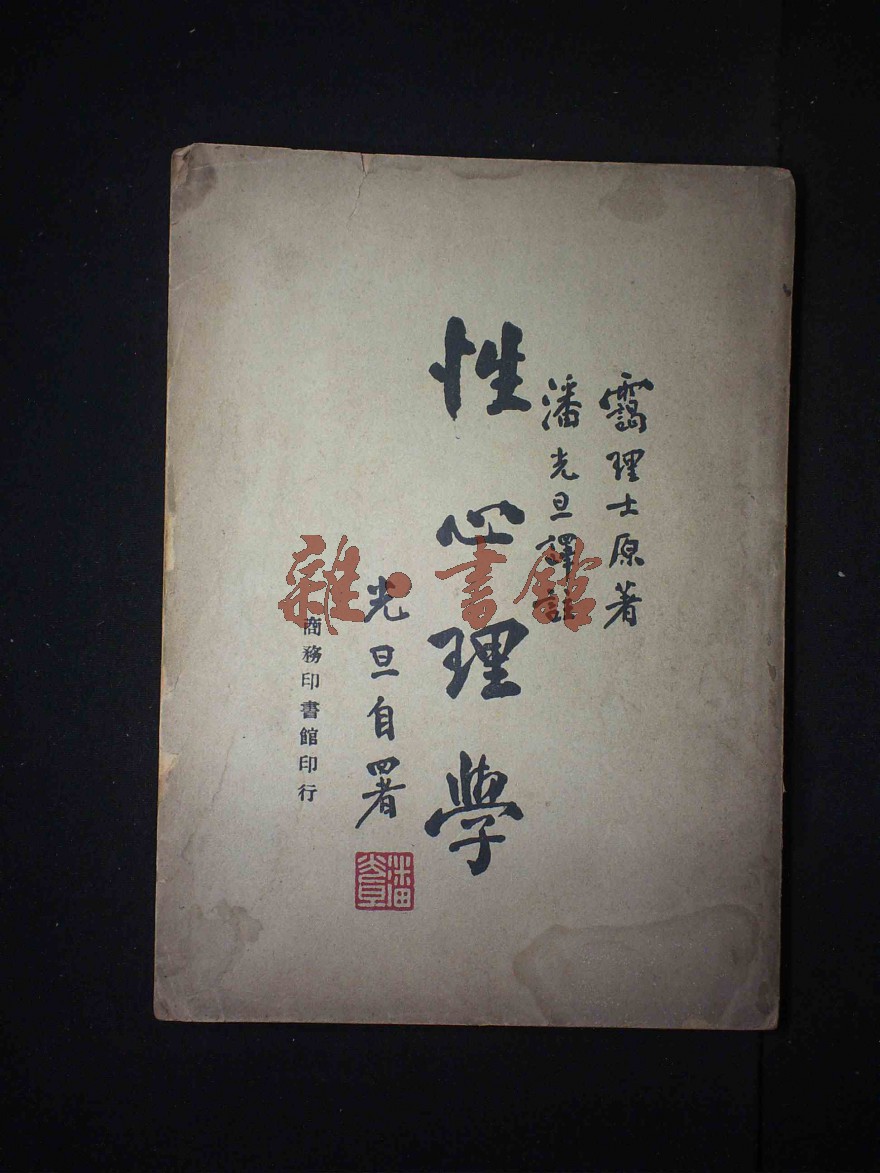 靄理士原著
潘光旦譯註
性心理學
光旦自署
潘光旦
商務印書館印行
雜·書館